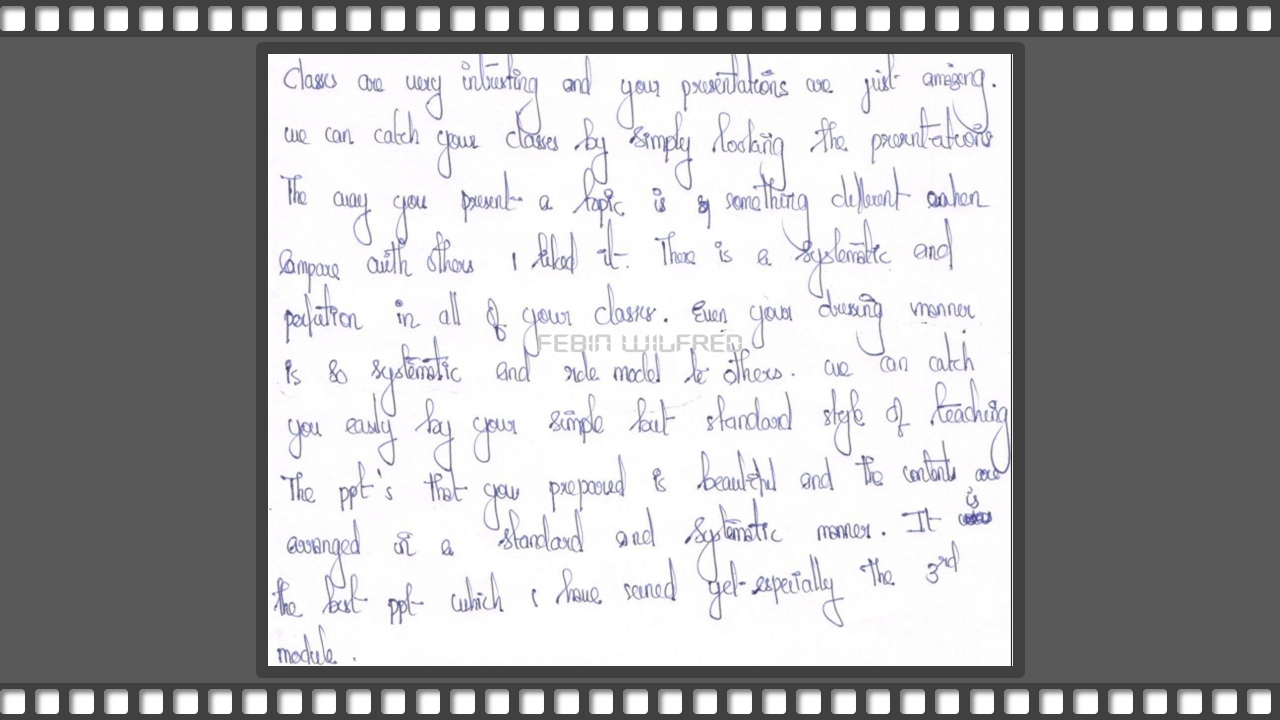 Classes are very intrusting and your presentations are just amazing.
we can catch your classes by simply looking the presentations
The way you present a topic is something different when
Compare with others I liked it. There is a systematic and
perfution in all of your classes. Even your dressing manner
FEBIN WILFRED
is so systematic and role model to others. we can catch
you easily by your simple but standard style of teaching
The ppt's that you prepared is beautiful and the contents are
arranged in a standard and systematic manner. It is
the best ppt which I have seened yet especially the 3rd
module.